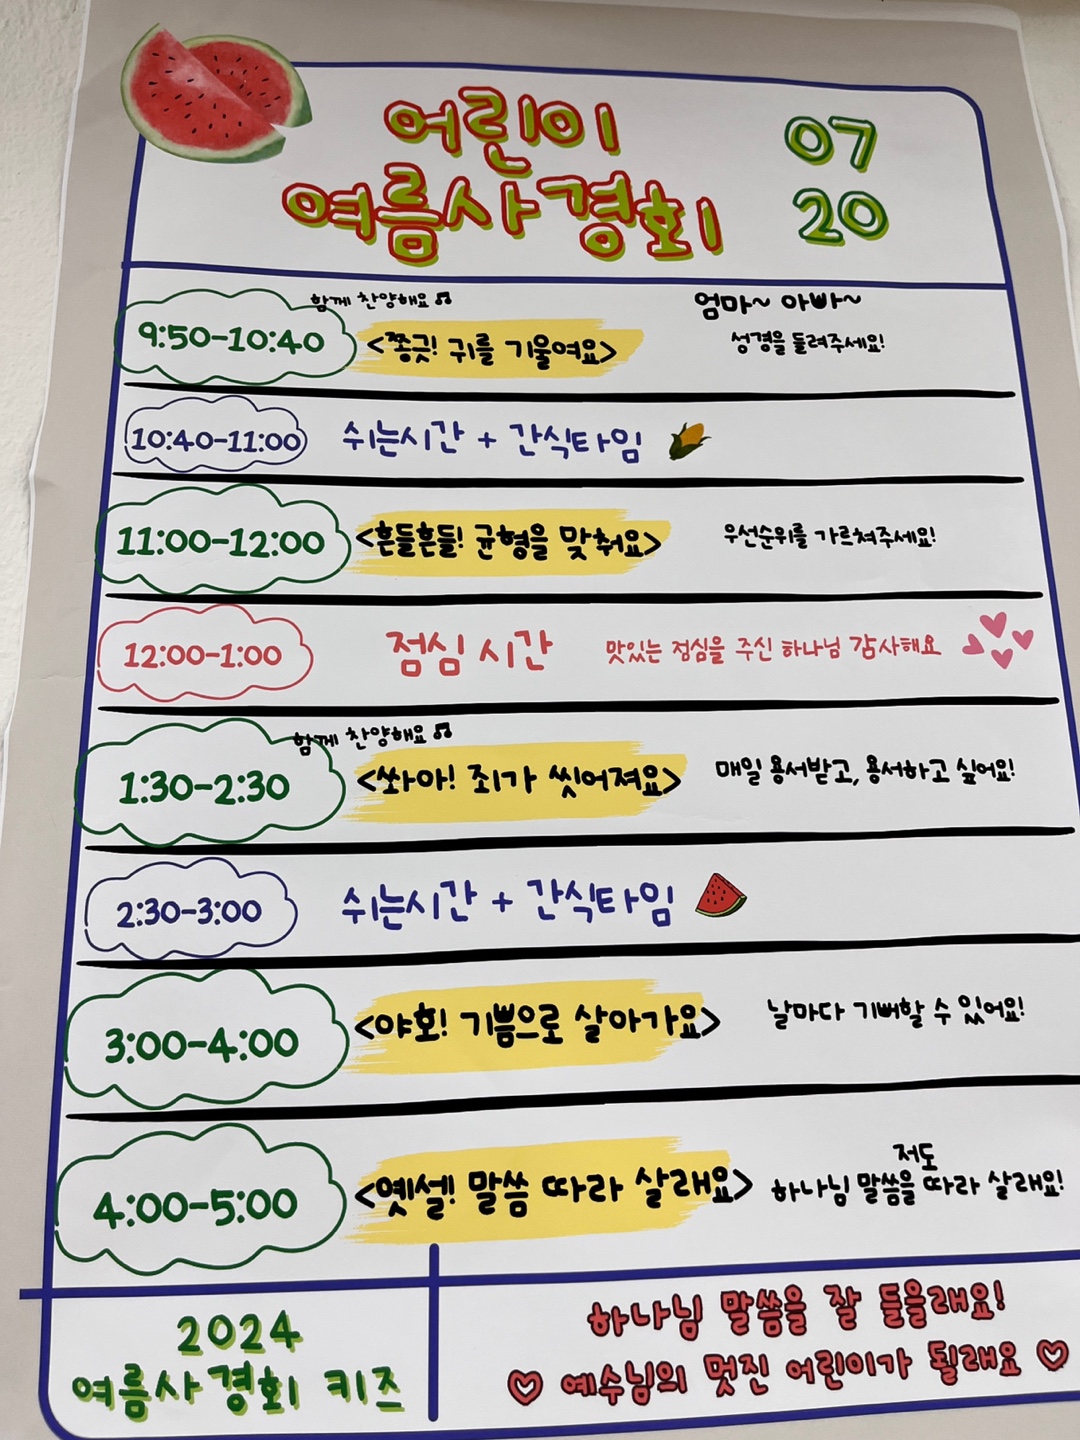 어린이
여름사경회
07
20
9:50-10:40
함께 찬양해요 ♫
<쫑긋! 귀를 기울여요>
엄마~ 아빠~
성경을 들려주세요!
10:40-11:00
쉬는시간 + 간식타임
11:00-12:00
<흔들흔들! 균형을 맞춰요>
우선순위를 가르쳐주세요!
12:00-1:00
점심 시간
맛있는 점심을 주신 하나님 감사해요
1:30-2:30
함께 찬양해요 ♫
<쏴아! 죄가 씻어져요>
매일 용서받고, 용서하고 싶어요!
2:30-3:00
쉬는시간 + 간식타임
3:00-4:00
<야호! 기쁨으로 살아가요>
날마다 기뻐할 수 있어요!
4:00-5:00
<옛설! 말씀 따라 살래요>
저도
하나님 말씀을 따라 살래요!
2024
여름사경회 키즈
하나님 말씀을 잘 들을래요!
♡ 예수님의 멋진 어린이가 될래요 ♡